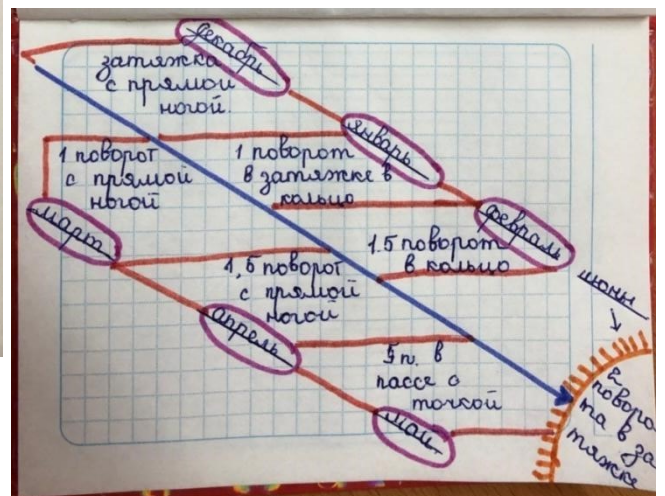 декабрь
затяжка
с прямой
ногой.
январь
1 поворот
с прямой
ногой
1 поворот
в затяжке в
кольцо
февраль
март
1.5 поворот
в кольцо
1,5 поворот
с прямой
ногой
апрель
5 п. в
пассе с
точкой
май
июнь
2
поворо
та в за
тяжке